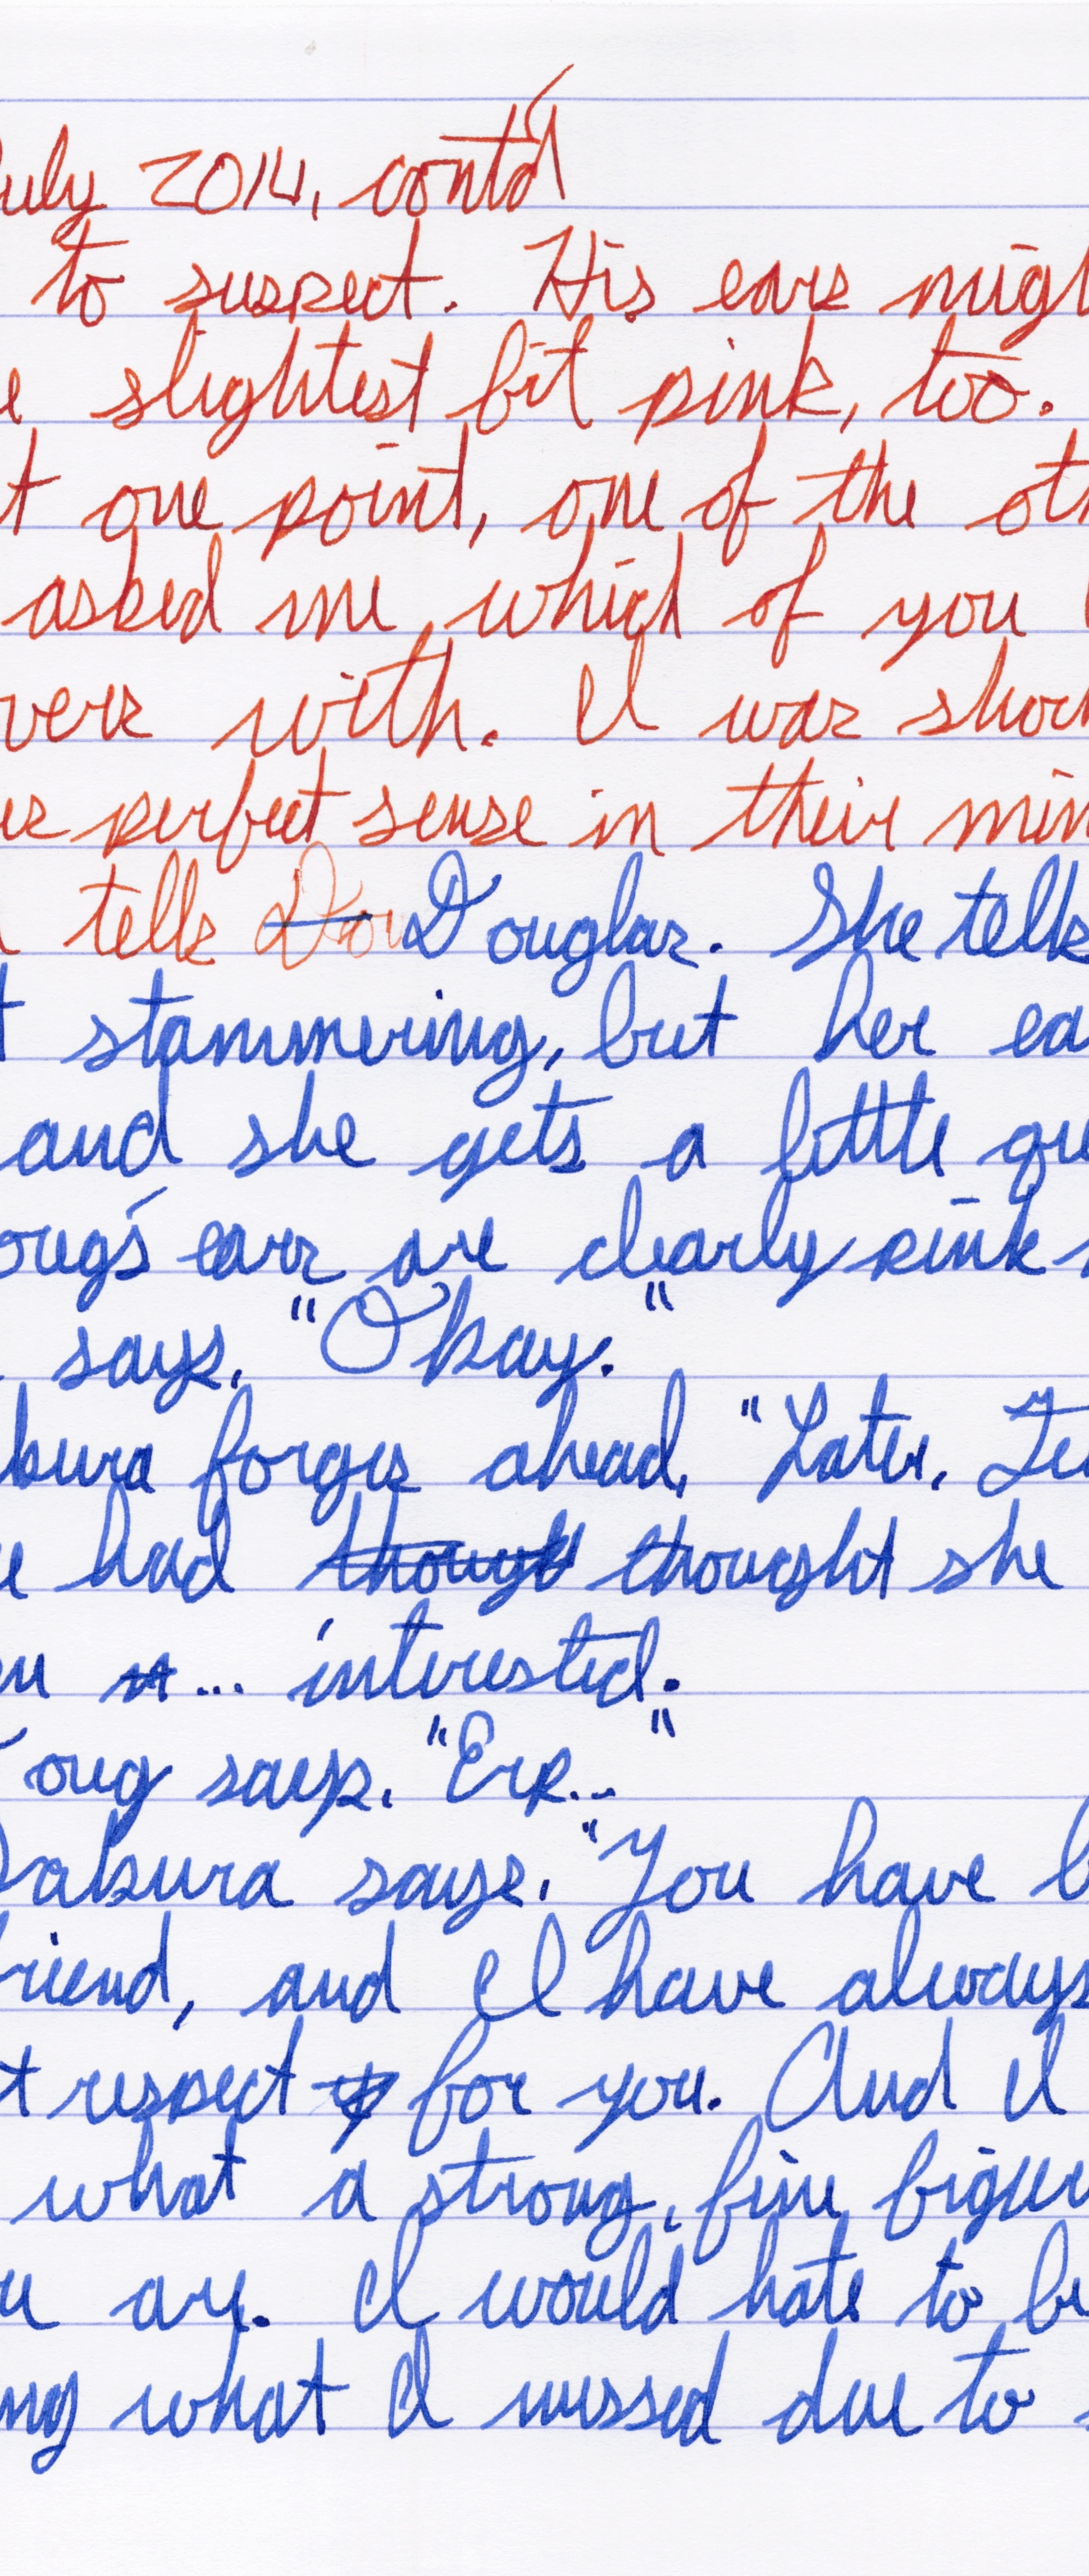 uly 2014, cont'd
to suspect. His ears migh
e slightest bit pink, too.
t one point, one of the oth
asked me which of you
vers with. I was shoc
es perfect sense in their min
tells Dou Douglas. She tells
t stammering, but her ea
and she gets a little qu
oug's ears are clearly pink
says, "Okay."
kura forges ahead, "Later,
e had though thought she
en ... interested.
oug says, "Erp..."
Sakura says, "You have b
friend, and I have always
t respect for you. And I
what a strong, fine figur
u are. I would hate to be
ng what I missed due to